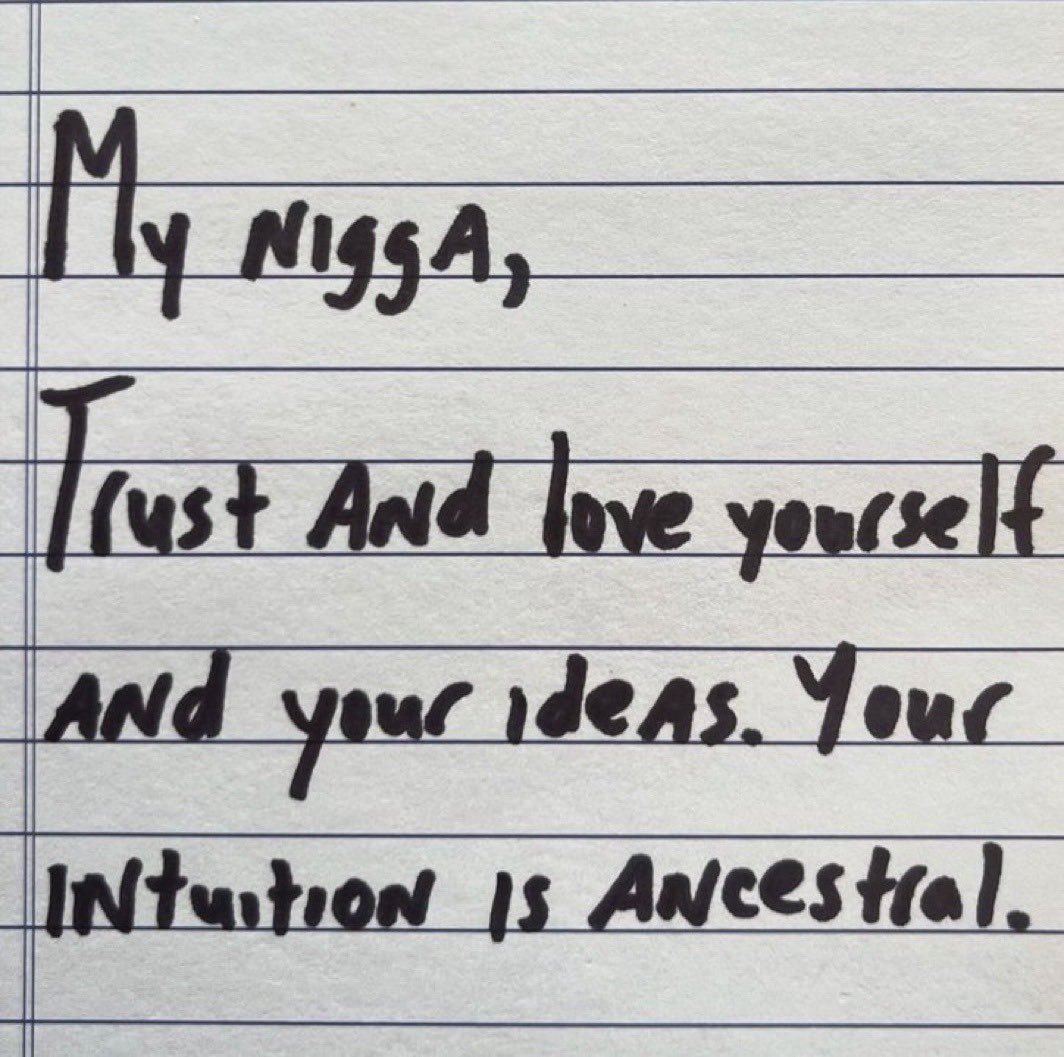 My NiggA,
Trust And love yourself
ANd your ideAs. Your
INtuitioN is ANcestral.